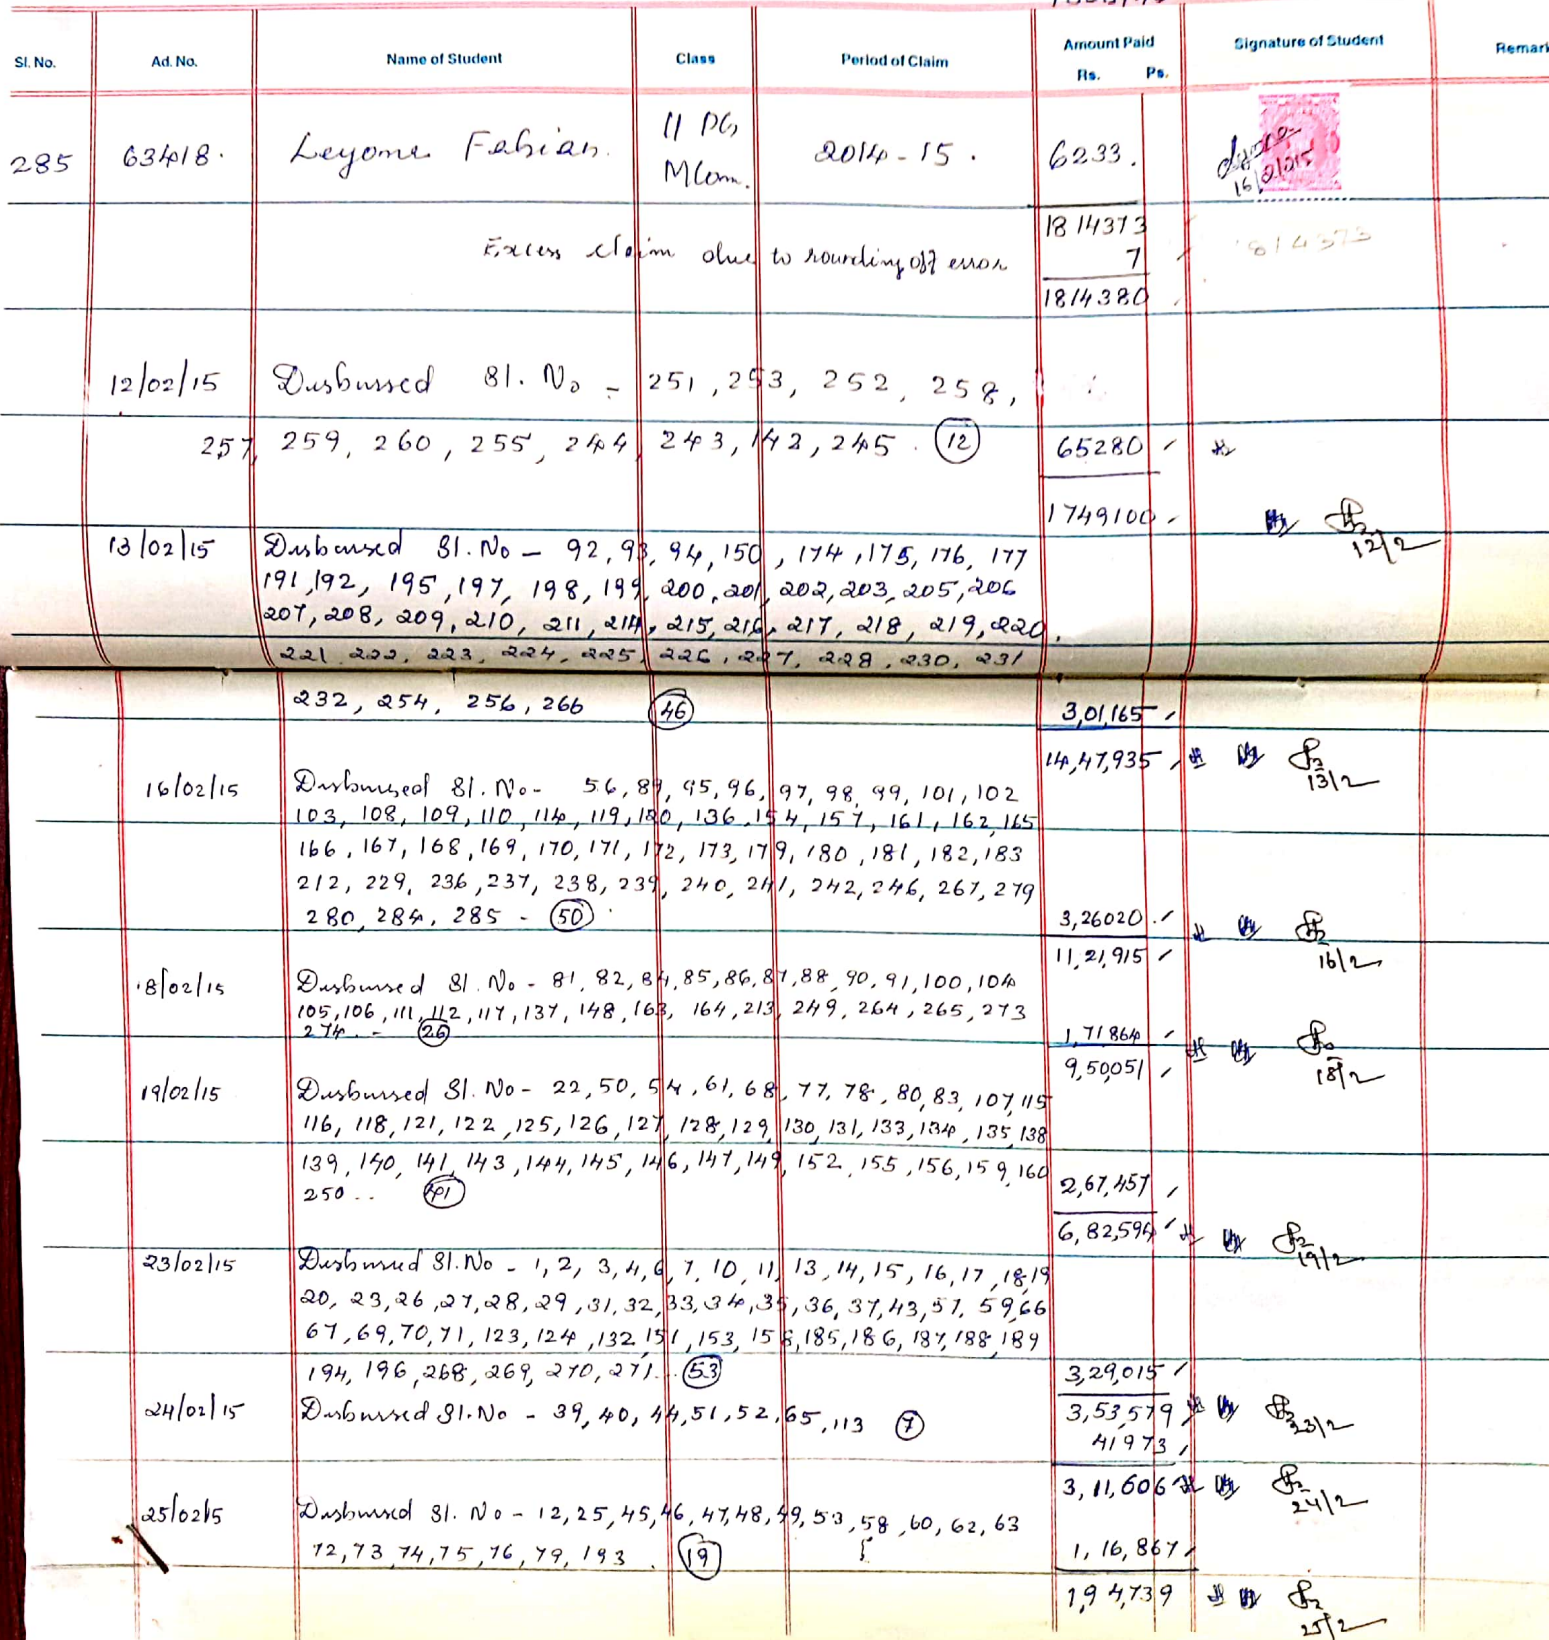 Sl. No. Ad. No. Name of Student Class Period of Claim Amount Paid Rs. Ps. Signature of Student Remar
285 63418. Leyome Fabian. II PG, MCom. 2014-15. 6233.
16/2/2015
1814373
Excess claim due to rounding off error 7
1814373
1814380
12/02/15 Disbursed Sl. No - 251, 253, 252, 258,
257, 259, 260, 255, 244, 243, 142, 245. (12) 65280
1749100
12/2
13/02/15 Disbursed Sl. No - 92, 93, 94, 150, 174, 175, 176, 177
191, 192, 195, 197, 198, 199, 200, 201, 202, 203, 205, 206
207, 208, 209, 210, 211, 214, 215, 216, 217, 218, 219, 220,
221, 222, 223, 224, 225, 226, 227, 228, 230, 231
232, 254, 256, 266 (46) 3,01,165
14,47,935
13/2
16/02/15 Disbursed Sl. No - 56, 89, 95, 96, 97, 98, 99, 101, 102
103, 108, 109, 110, 114, 119, 120, 136, 154, 157, 161, 162, 165
166, 167, 168, 169, 170, 171, 172, 173, 179, 180, 181, 182, 183
212, 229, 236, 237, 238, 239, 240, 241, 242, 246, 267, 279
280, 284, 285 - (50) 3,26020
11,21,915
16/2
18/02/15 Disbursed Sl. No - 81, 82, 84, 85, 86, 87, 88, 90, 91, 100, 104
105, 106, 111, 112, 117, 137, 148, 163, 164, 213, 249, 264, 265, 273
274. - (26) 1,71864
9,50,051
18/2
19/02/15 Disbursed Sl. No - 22, 50, 54, 61, 68, 77, 78, 80, 83, 107, 115
116, 118, 121, 122, 125, 126, 127, 128, 129, 130, 131, 133, 134, 135, 138
139, 140, 141, 143, 144, 145, 146, 147, 149, 152, 155, 156, 159, 160
250.. (41) 2,67,457
6,82,594
19/2
23/02/15 Disbursed Sl. No - 1, 2, 3, 4, 6, 7, 10, 11, 13, 14, 15, 16, 17, 18, 19
20, 23, 26, 27, 28, 29, 31, 32, 33, 34, 35, 36, 37, 43, 57, 59, 66
67, 69, 70, 71, 123, 124, 132, 151, 153, 158, 185, 186, 187, 188, 189
194, 196, 268, 269, 270, 271. (53) 3,29,015
3,53,579
23/2
24/02/15 Disbursed Sl. No - 39, 40, 44, 51, 52, 65, 113 (7)
41973
3,11,606
24/2
25/02/15 Disbursed Sl. No - 12, 25, 45, 46, 47, 48, 49, 53, 58, 60, 62, 63
72, 73, 74, 75, 76, 79, 193. (19) 1,16,867
1,94,739
25/2